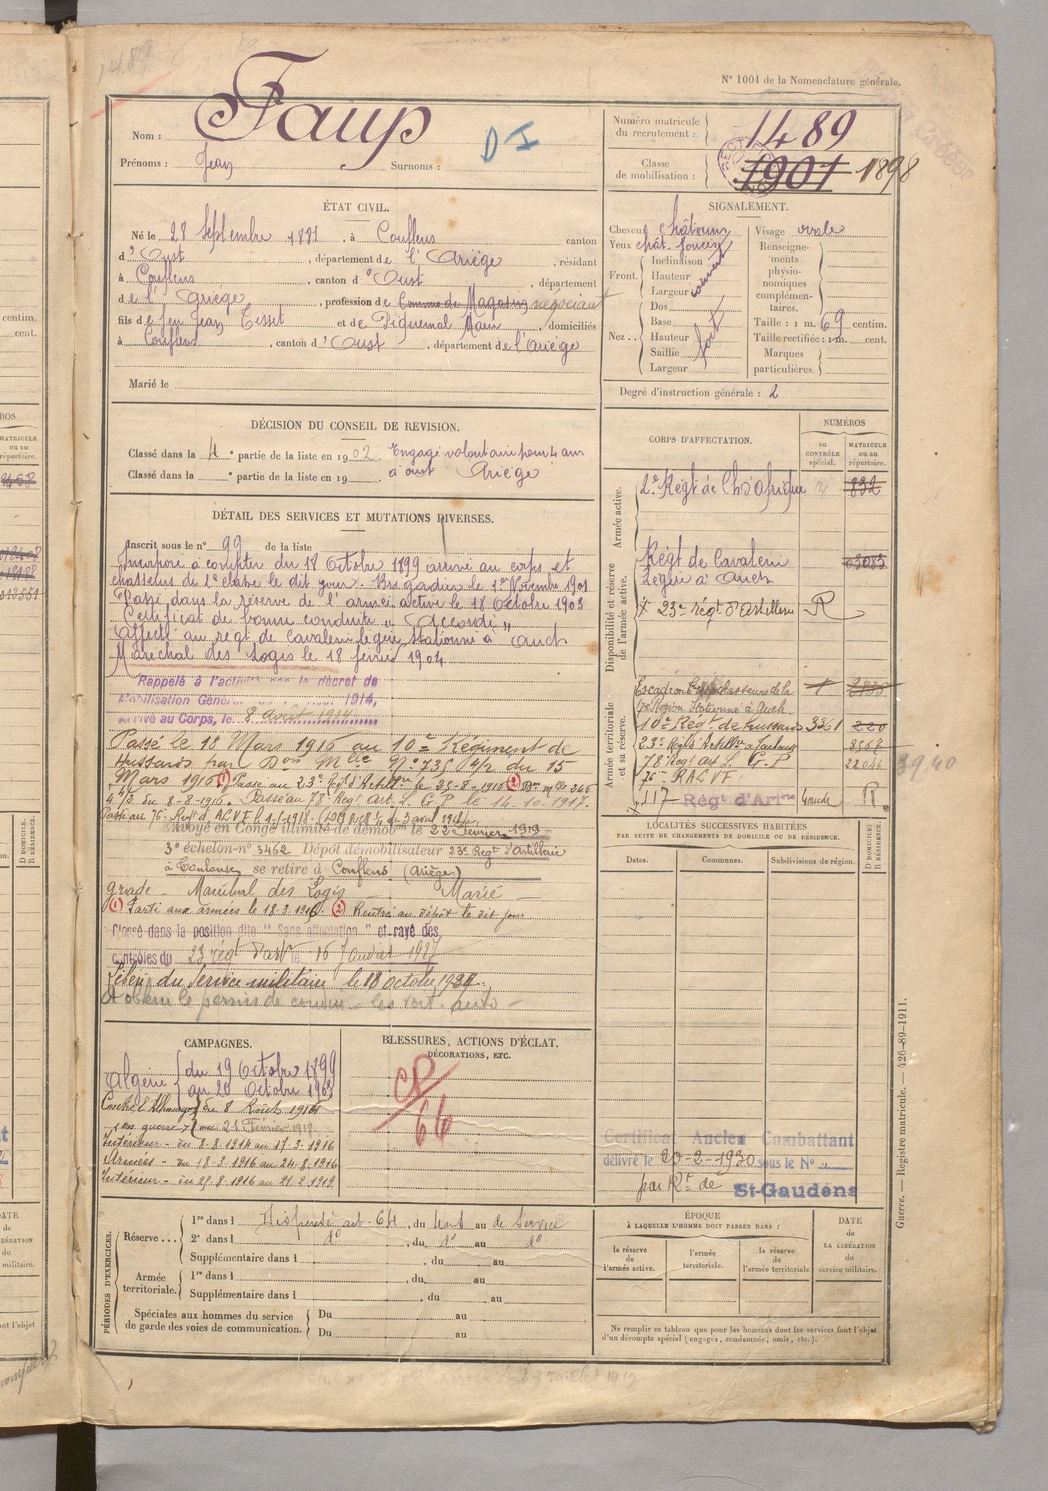 N° 1001 de la Nomenclature générale.
1489
Nom : Faup
D I
Prénoms : Jean Surnoms :
Numéro matricule du recrutement : 1489
Classe de mobilisation : 1901 1898
ÉTAT CIVIL.
Né le 28 Septembre 1881, à Couflens canton
d'Oust, département de l'Ariège, résidant
à Couflens, canton d'Oust, département
de l'Ariège, profession de Commis de Magasin négociant
fils de feu Jean Tisset et de Piquemal Marie, domiciliés
à Couflens, canton d'Oust, département de l'Ariège
Marié le
SIGNALEMENT.
Cheveux châtains
Yeux chât. foncés
Front. Inclinaison
Hauteur
Largeur
couvert
Nez... Dos
Base
Hauteur
Saillie
Largeur
fort
Visage ovale
Renseignements physionomiques complémentaires.
Taille : 1 m. 69 centim.
Taille rectifiée : 1 m. cent.
Marques particulières.
Degré d'instruction générale : 2
DÉCISION DU CONSEIL DE REVISION.
Classé dans la 4e partie de la liste en 1902. Engagé volontaire pour 4 ans
Classé dans la e partie de la liste en 19 à Oust Ariège
DÉTAIL DES SERVICES ET MUTATIONS DIVERSES.
Inscrit sous le n° 99 de la liste
Incorporé à compter du 18 Octobre 1899 arrivé au corps et
chasseur de 2e classe le dit jour. Brigadier le 1er Novembre 1901
Passé dans la réserve de l'armée active le 18 Octobre 1903
Certificat de bonne conduite "Accordé"
Affecté au rég.t de Cavalerie légère stationné à Auch
Maréchal des Logis le 18 février 1904
Rappelé à l'activité par le décret de
Mobilisation Générale du 1er Août 1914,
Arrivé au Corps, le 8 août 1914
Passé le 18 Mars 1916 au 10e Régiment de
Hussards par Don Mlle N° 735 S/p du 15
Mars 1916 (1) Passé au 23e Rég.t d'Artill.ie le 25-8-1916 (2) Don mlle 346
4e/3 du 8-8-1916. Passé au 78e Régt. art. L. G. P. le 14.10.1917.
Passé au 76e Régt d'ALVF le 1-4-1918.
Envoyé en Congé illimité de démob.on le 22 Février 1919
3e échelon n° 3462 Dépôt démobilisateur 23e Régt d'Artillerie
à Toulouse, se retire à Couflens (Ariège)
grade Maréchal des Logis Marié
(1) Parti aux armées le 18.3.1916 (2) Rentré au dépôt le dit jour
Classé dans la position dite "Sans affectation" et rayé des
contrôles du 23 régt d'art le 16 Juillet 1927
Libéré du Service militaire le 18 octobre 1927.
A obtenu le permis de conduire les voit. auto
CORPS D'AFFECTATION.
NUMÉROS
au CONTRÔLE spécial.
MATRICULE ou au répertoire.
Armée active.
2e Régt de Ch. d'Afrique 832
Disponibilité et réserve de l'armée active.
Régt de Cavalerie 03083
légère à Auch
23e régt d'Artillerie R
Armée territoriale et sa réserve.
Escadron de chasseurs de la 1
17e Région Stationné à Auch
10e Régt de hussards 3361 220
23e Régt d'Artill.ie à Toulouse 8568
78e Régt art L. G. P 22046
76e RALVF
117 Régt d'Art.rie Lourde R
39,40
LOCALITÉS SUCCESSIVES HABITÉES
PAR SUITE DE CHANGEMENTS DE DOMICILE OU DE RÉSIDENCE.
Dates. Communes. Subdivisions de région.
D DOMICILE; R RÉSIDENCE.
CAMPAGNES.
Algérie { du 19 Octobre 1899
au 20 Octobre 1903
Contre l'Allemagne { du 8 Août 1914
au 21 Février 1919
Intérieur - du 8-8-1914 au 17-3-1916
Armées - du 18-3-1916 au 24-8-1916
Intérieur - du 25-8-1916 au 21-2-1919
BLESSURES, ACTIONS D'ÉCLAT,
DÉCORATIONS, ETC.
CP
66
Certificat Ancien Combattant
délivré le 20-2-1930 sous le N°
par Rt de St-Gaudens
PÉRIODES D'EXERCICES.
Réserve... 1re dans l Dispensé art. 64, du temps au de Service
2e dans l d°, du d° au d°
Supplémentaire dans l , du au
Armée territoriale. 1re dans l , du au
Supplémentaire dans l , du au
Spéciales aux hommes du service de garde des voies de communication. Du au
Du au
ÉPOQUE
À LAQUELLE L'HOMME DOIT PASSER DANS :
la réserve de l'armée active.
l'armée territoriale.
la réserve de l'armée territoriale
DATE DE LA LIBÉRATION du service militaire.
Ne remplir ce tableau que pour les hommes dont les services font l'objet
d'un décompte spécial (engagés, condamnés, omis, etc.).
Guerre. — Registre matricule. — 426-89-1911.